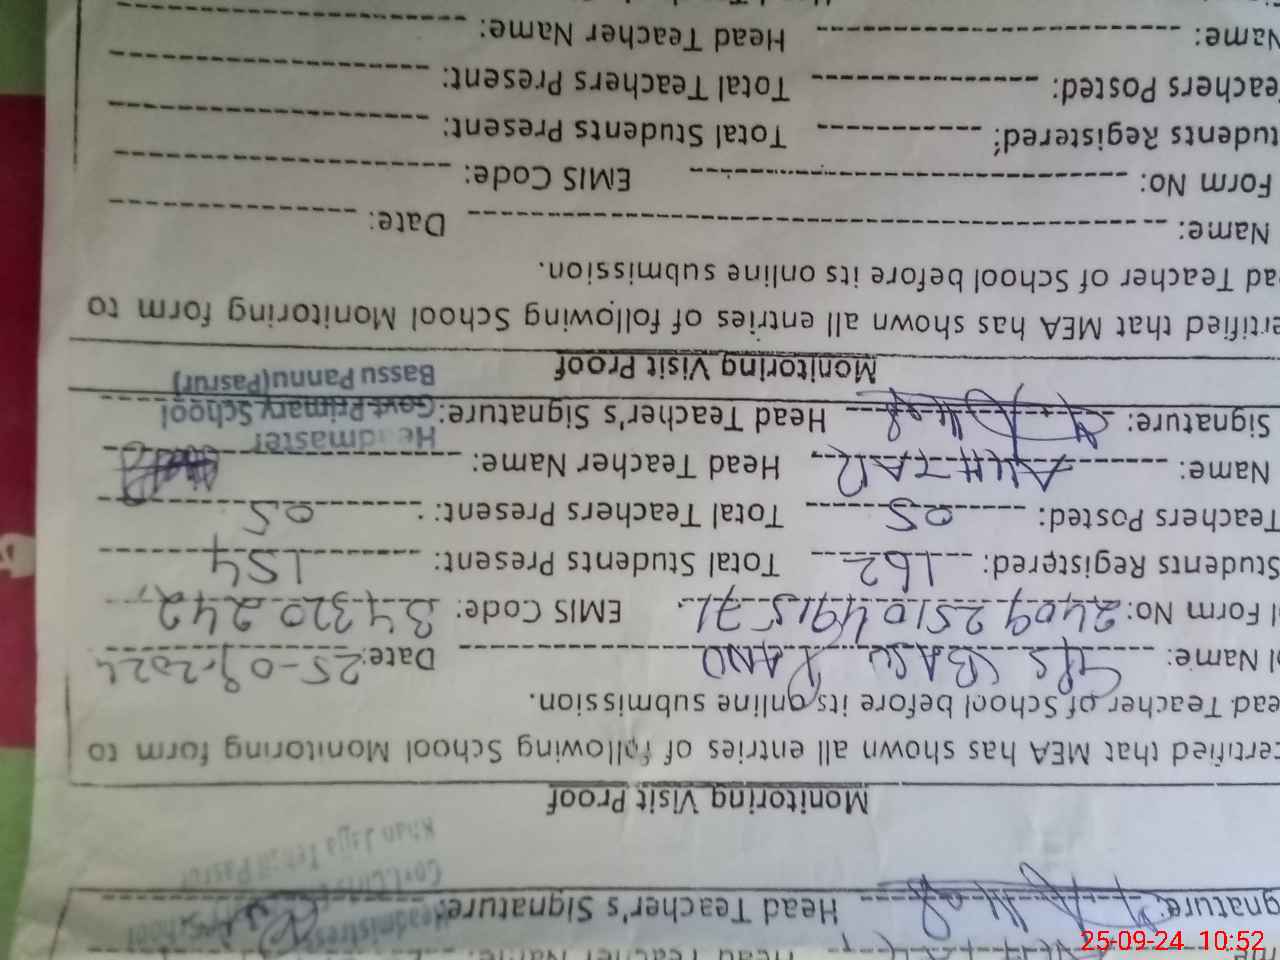 Head Teacher's Signature:
Headmistress
Monitoring Visit Proof
ertified that MEA has shown all entries of following School Monitoring form to
ead Teacher of School before its online submission.
l Name: GPS Date: 25-09-2024
l Form No: 2409251049 EMIS Code: 34320242
Students Registered: 162 Total Students Present: 154
Teachers Posted: 05 Total Teachers Present: 05
Name: Head Teacher Name:
Headmaster
Signature: Head Teacher's Signature: Govt Primary School
Bassu Pannu (Pasrur)
Monitoring Visit Proof
ertified that MEA has shown all entries of following School Monitoring form to
ead Teacher of School before its online submission.
Name: Date:
Form No: EMIS Code:
tudents Registered: Total Students Present:
eachers Posted: Total Teachers Present:
Name: Head Teacher Name:
25-09-24 10:52